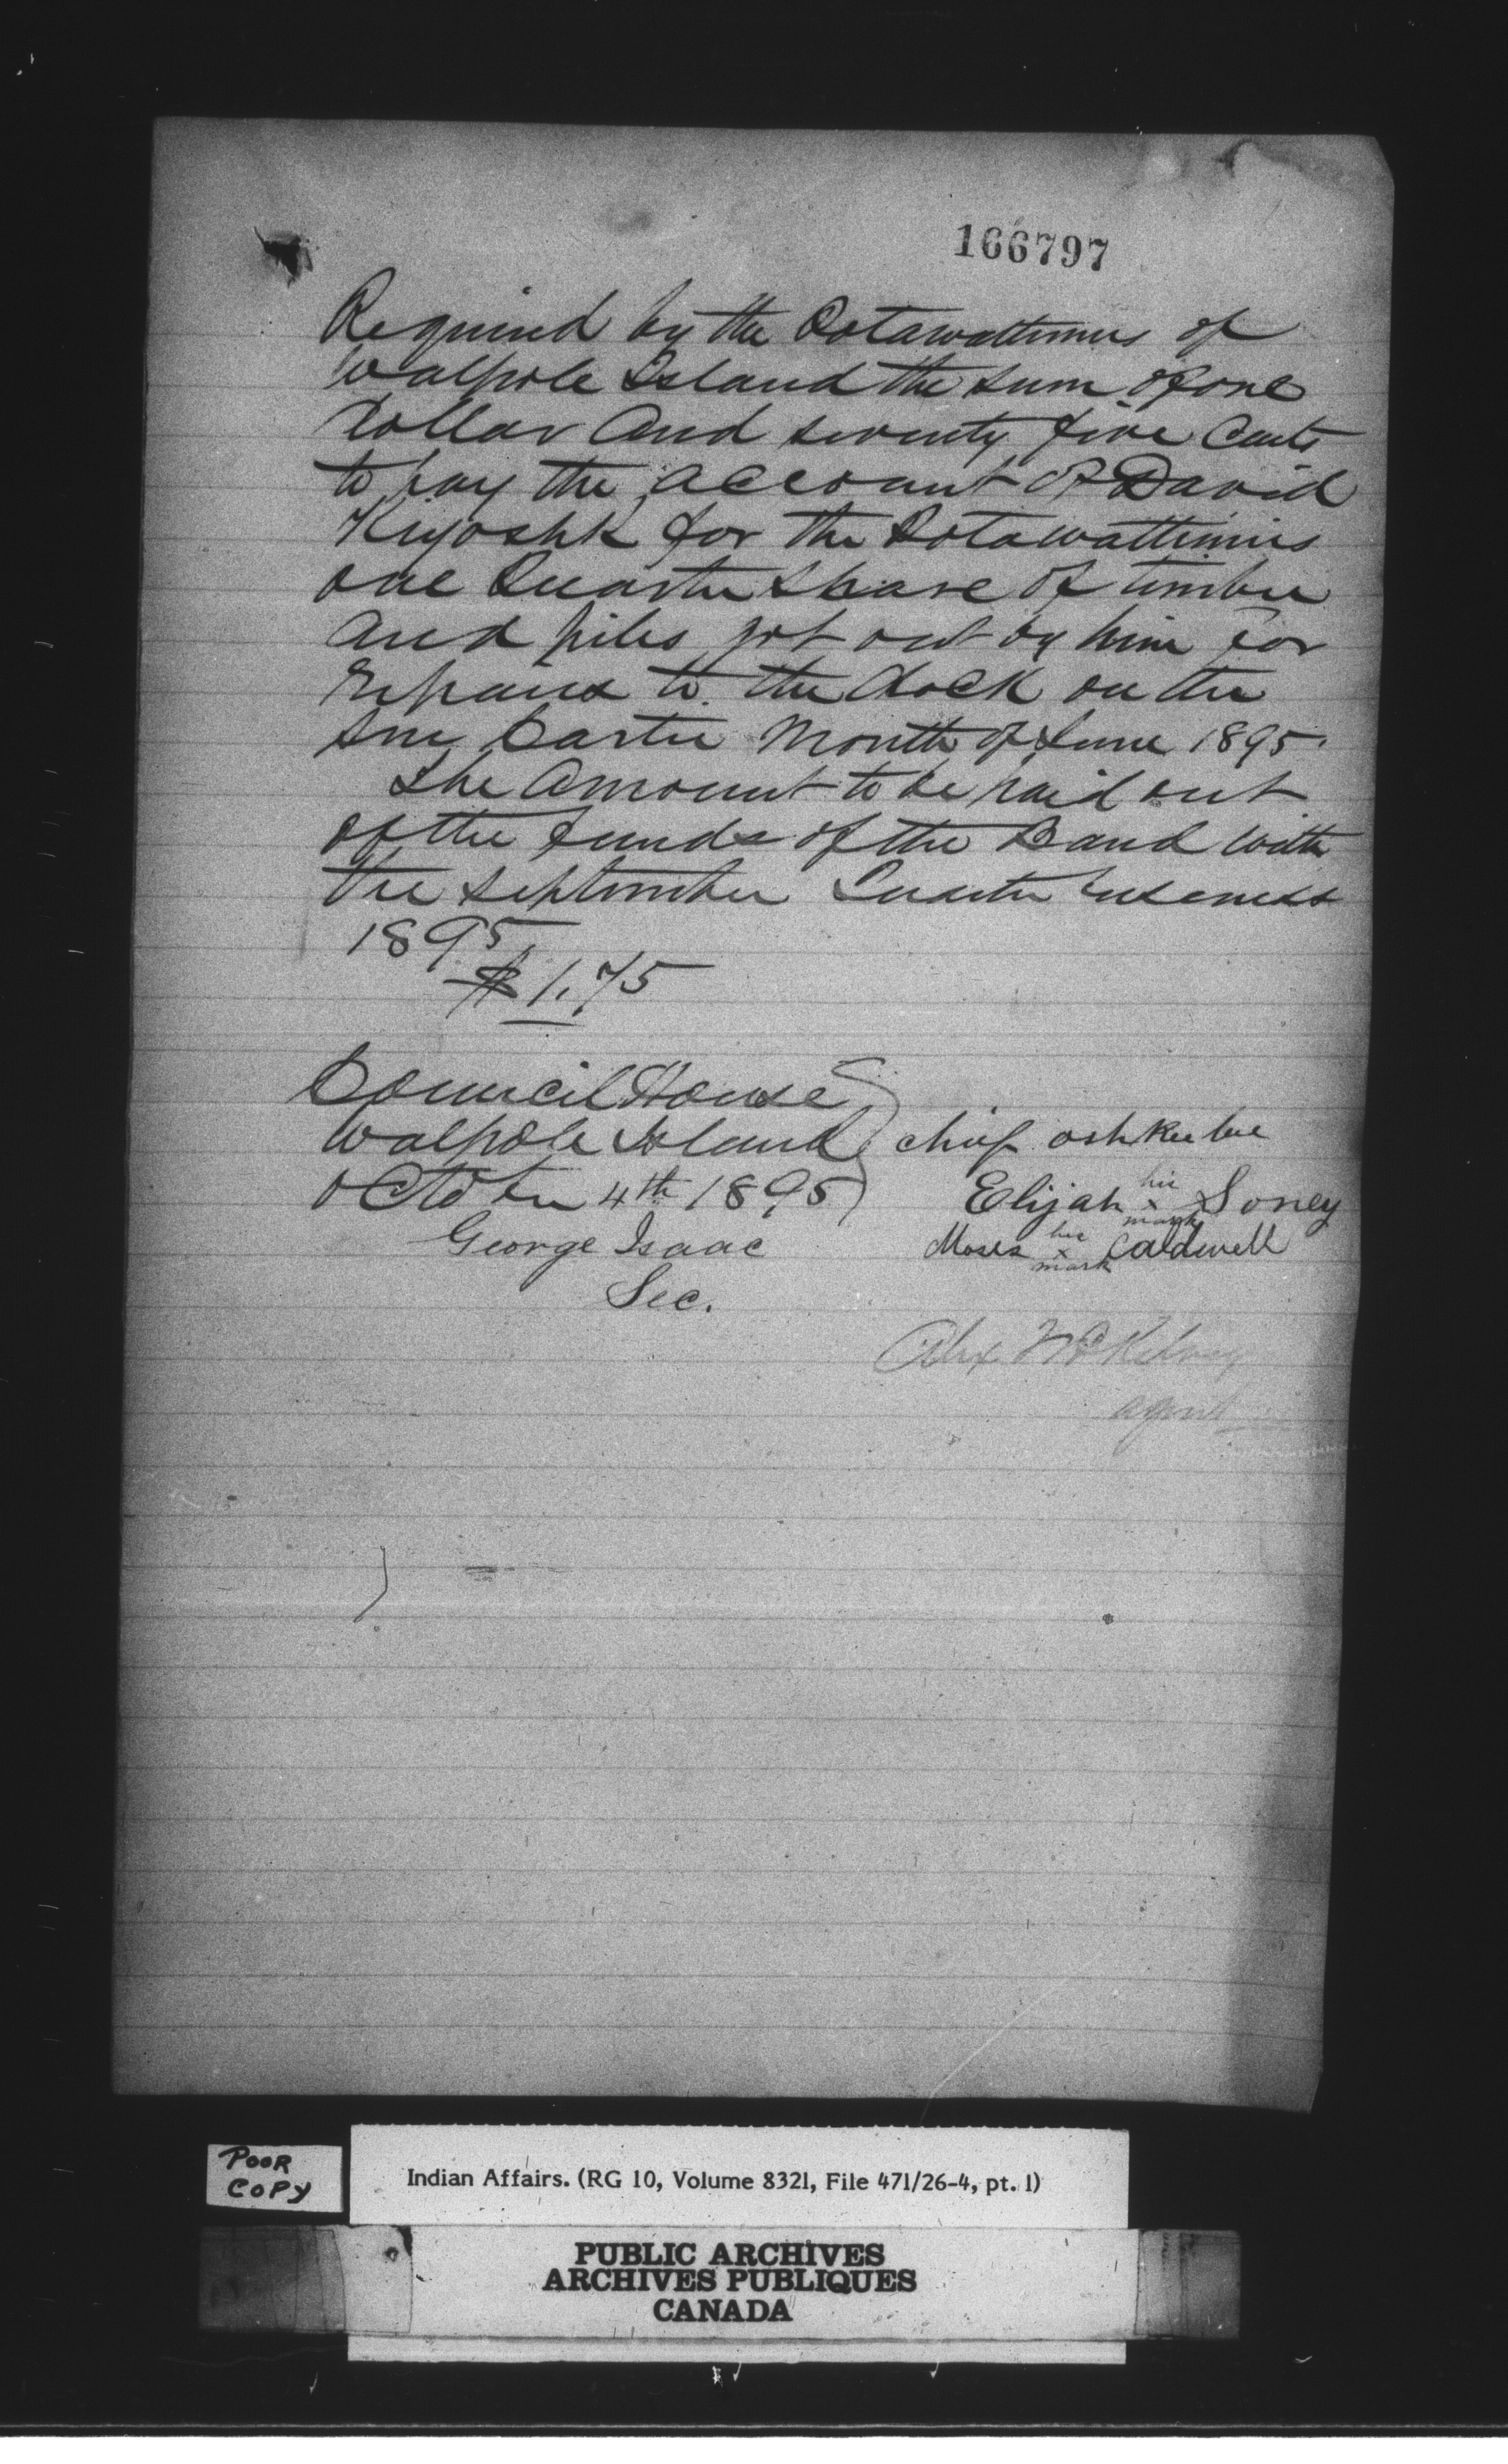 166797
Required by the Potawattimies of
Walpole Island the sum of one
dollar and seventy five cents
to pay the account of David
Kiyoshk for the Potawattimies
one Quarter share of timber
and piles got out by him for
repairs to the dock on the
Month of June 1895.
The Amount to be paid out
of the funds of the Band with
the September Quarter buseness
1895.
$1.75
Council House
Walpole Island
October 4th 1895
George Isaac
Sec.
chief ashkeebee
Elijah his x mark Soney
Moses his x mark Caldwell
Alex McKelvey
agent
POOR
COPY
Indian Affairs. (RG 10, Volume 8321, File 471/26-4, pt. 1)
PUBLIC ARCHIVES
ARCHIVES PUBLIQUES
CANADA